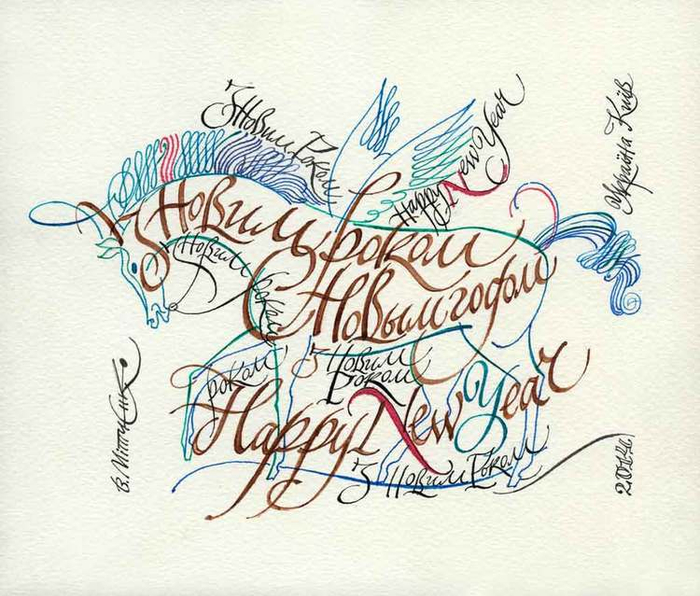 З Новим Роком
Happy New Year
Україна Київ
З Новим роком
З Новим роком
С Новым годом
роком
З Новим Роком
Happy New Year
З Новим Роком
В. Мітченко